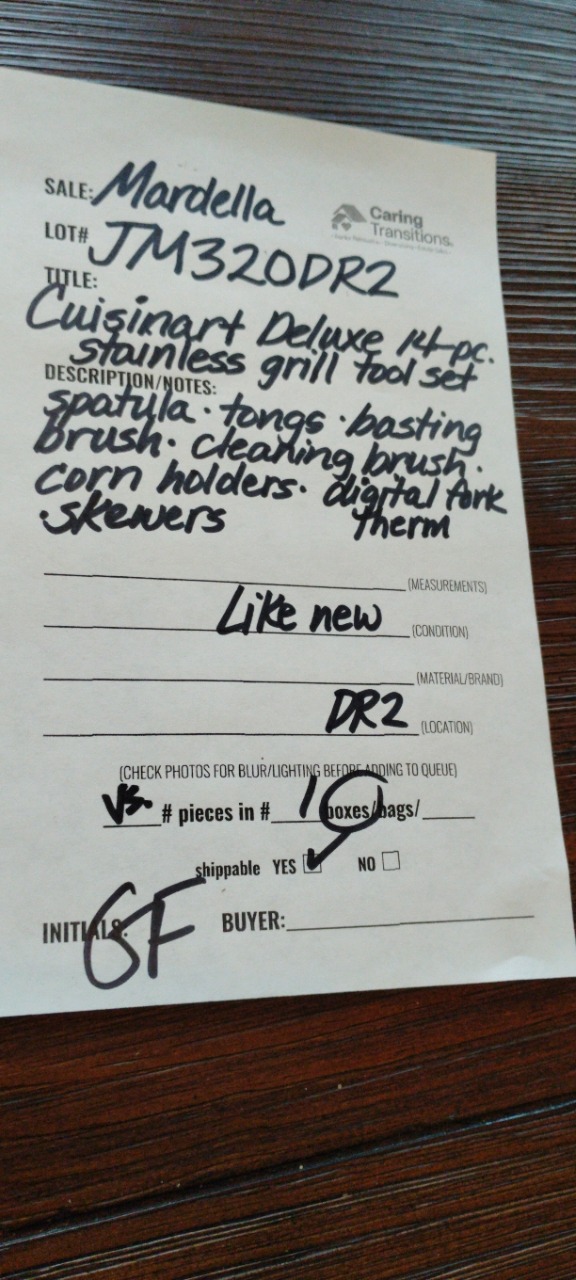 SALE: Mardella
Caring
Transitions.
LOT# JM320DR2
TITLE:
Cuisinart Deluxe 14-pc.
stainless grill tool set
DESCRIPTION/NOTES:
spatula · tongs · basting
brush · cleaning brush ·
corn holders · digital fork
· skewers therm
(MEASUREMENTS)
Like new (CONDITION)
(MATERIAL/BRAND)
DR2 (LOCATION)
(CHECK PHOTOS FOR BLUR/LIGHTING BEFORE ADDING TO QUEUE)
VS. # pieces in # 1 boxes/bags/
shippable YES ✓ NO
INITIALS: GF BUYER: